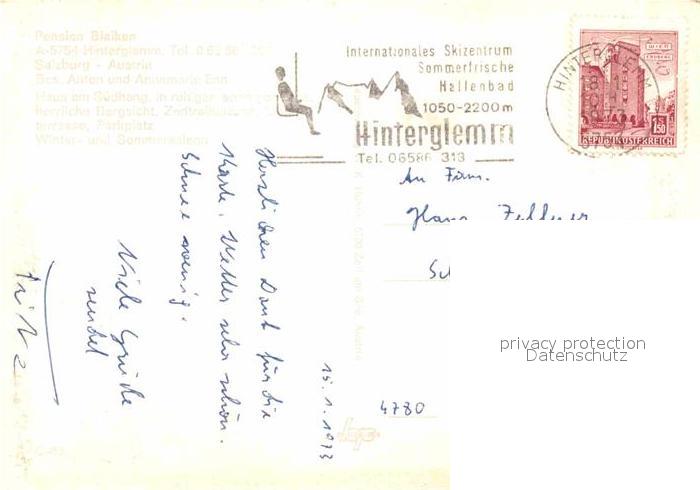 Pension Bleiken
A-5754 Hinterglemm, Tel. 0 65 86
Salzburg - Austria
Bes. Anton und Annemarie Enn
Haus am Südhang, in ruhiger
herrliche Bergsicht, Zentralheizung
terrasse, Parkplatz
Winter- und Sommersaison
Internationales Skizentrum
Sommerfrische
Hallenbad
1050-2200m
Hinterglemm
Tel. 06586 313
HINTERGLEMM
5754
WIEN
ERDBERG
1.50
REPUBLIK ÖSTERREICH
An Fam.
Hans
4780
15.1.1973
Herzlichen Dank für die
Karte. Wetter sehr schön.
Schnee wenig.
Viele Grüße
sendet
Fritz
privacy protection
Datenschutz